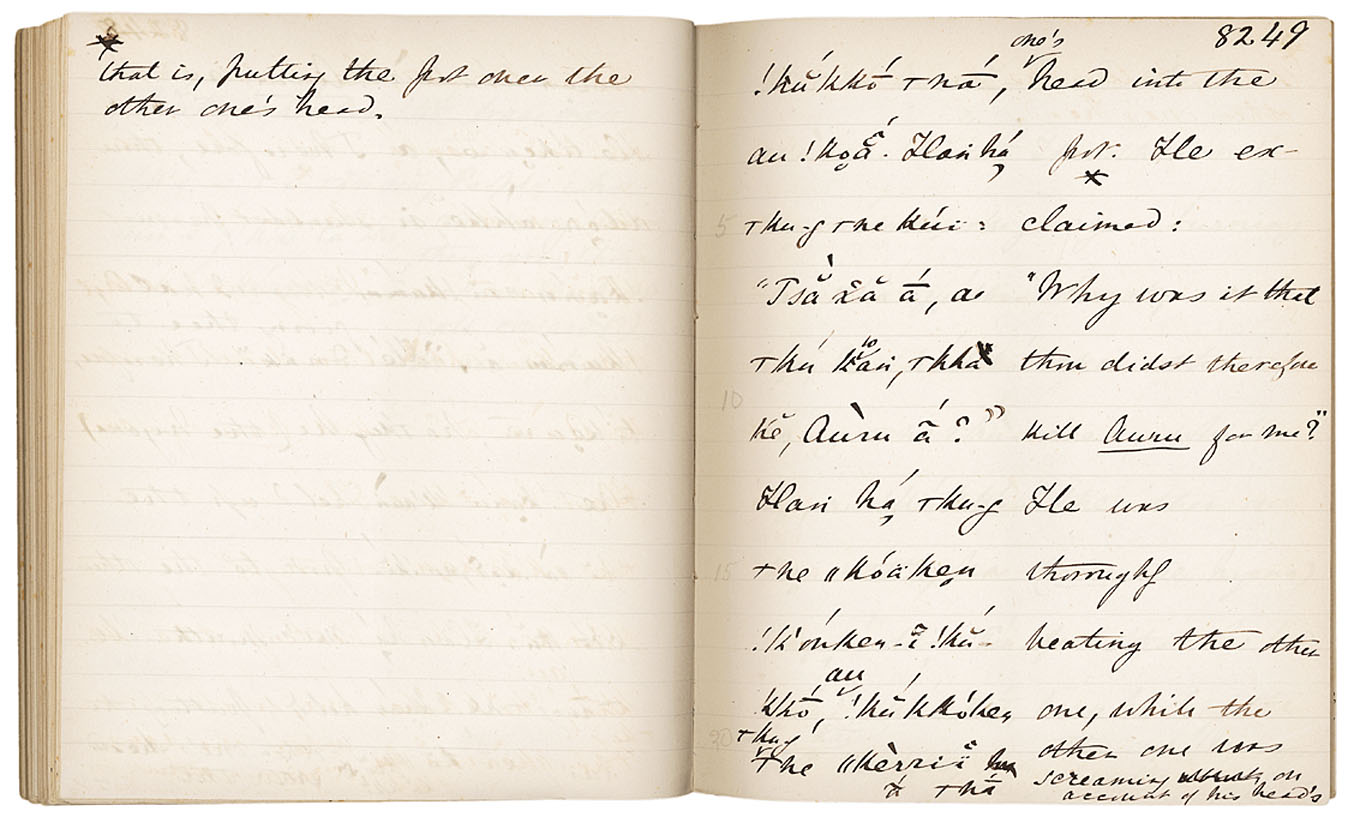 that is, putting the pot over the
other one's head.
8249
!kŭ́kkō̆ ꞇná̄, one's head into the
au !koā̃. Haŋ há̦ pot. He ex-
5 ꞇku-g ꞇne kúi: claimed:
"Tsā̆̀ x̱ă ā́, a "Why was it that
ꞇkú ꞇkhá thou didst therefore
10
kĕ, Aùru ā́?" kill Auru for me?"
Haŋ há̦ ꞇku-g He was
15 ꞇne ǁkóäkeṇ thoroughly
!k'óṅkeṇ-ĩ !kŭ́- beating the other
au
kkō̆, !kŭ́kkókeṇ one, while the
20 ꞇku-g
ꞇne ǁkèrriï other one was
ā́ ꞇná̄ screaming on
account of his head's